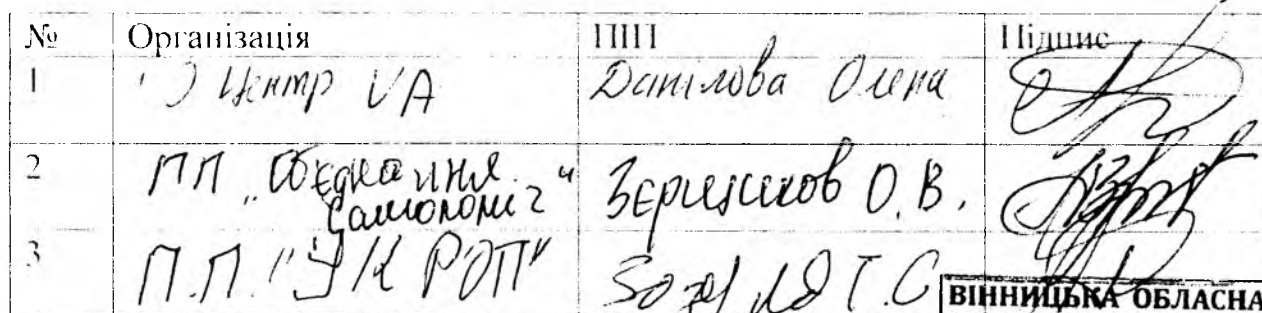 № Організація ПІП Підпис
1 Центр UA Данілова Олена
2 ПП "Об'єднання Самопоміч" О.В.
3 П.П. "УКРОП" Т.С
ВІННИЦЬКА ОБЛАСНА